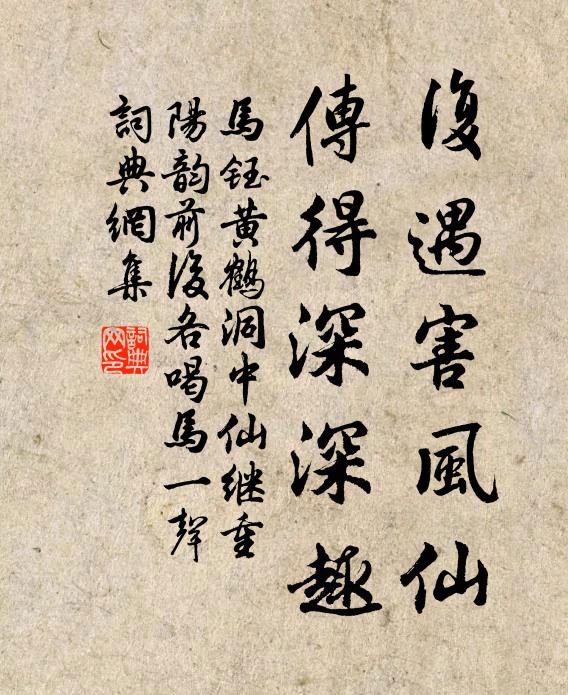 復遇害風仙
傳得深深趣
馬鈺黃鶴洞中仙继重
陽韵前後各喝馬一聲
詞典網集
詞典
网印